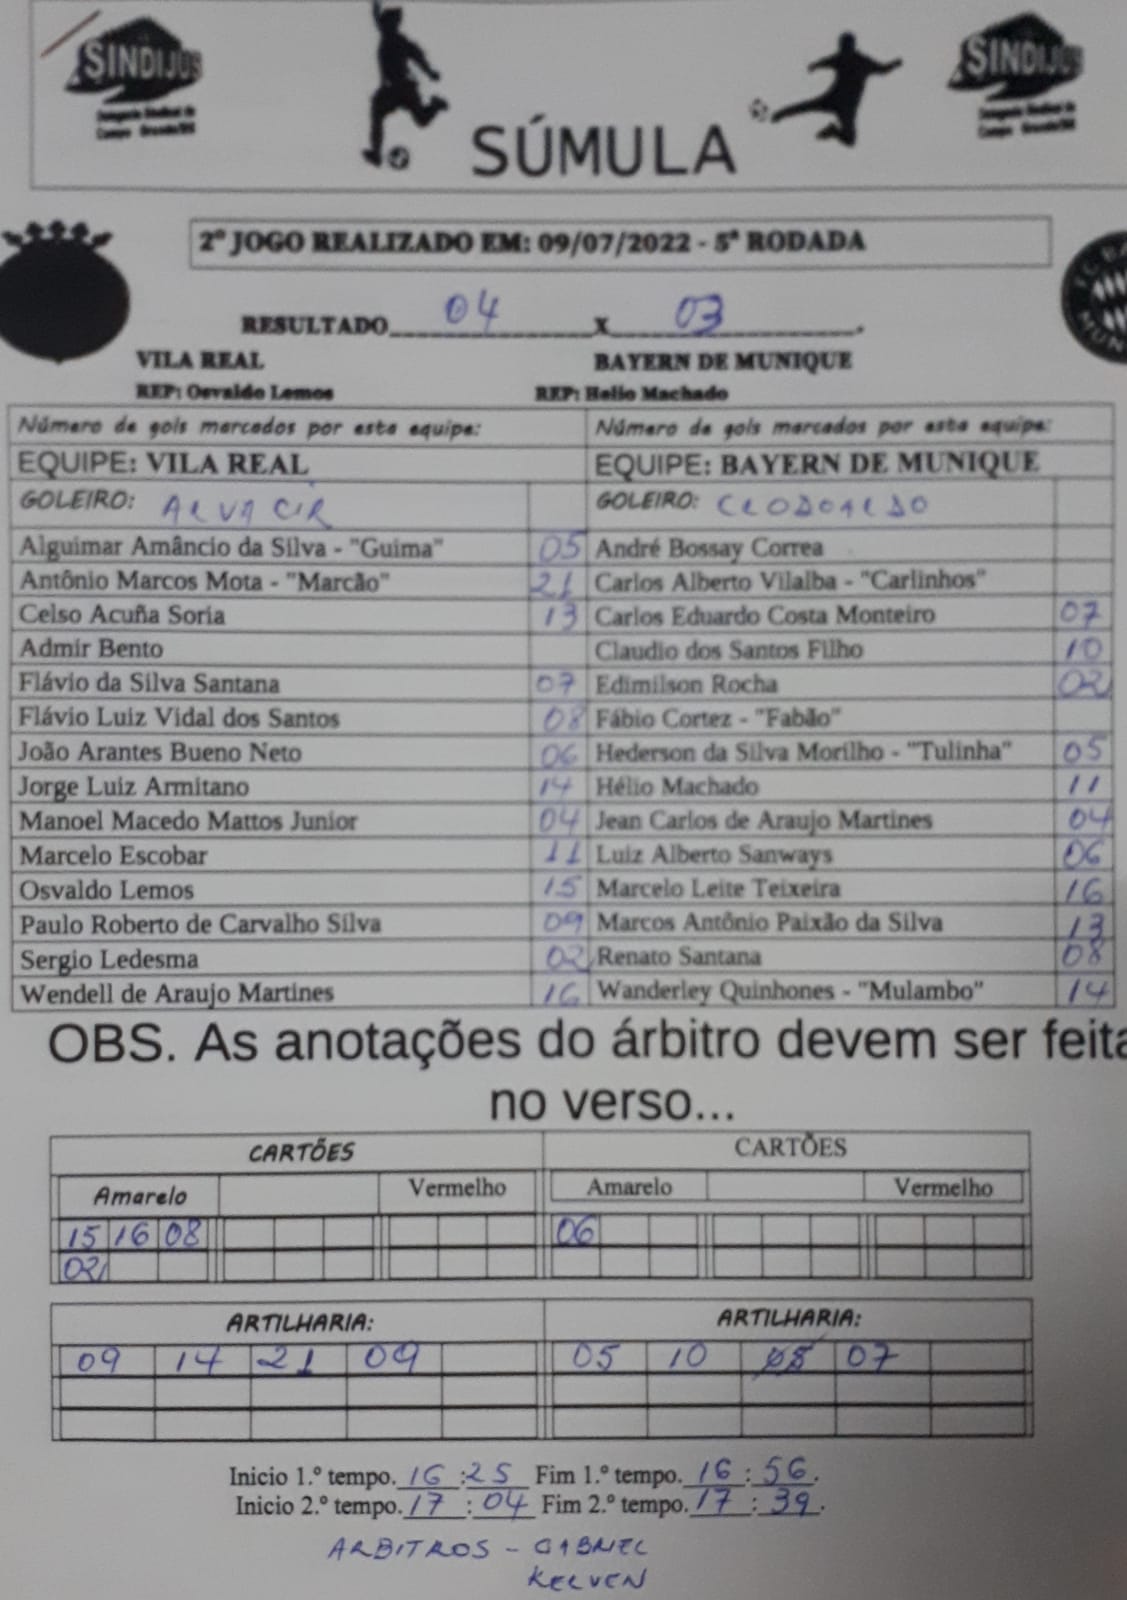 SINDIJUS
SINDIJUS
SÚMULA
2º JOGO REALIZADO EM: 09/07/2022 - 5ª RODADA
RESULTADO 04 X 03.
VILA REAL BAYERN DE MUNIQUE
REP: Osvaldo Lemos REP: Helio Machado
Número de gols marcados por esta equipe: Número de gols marcados por esta equipe:
EQUIPE: VILA REAL EQUIPE: BAYERN DE MUNIQUE
GOLEIRO: ALVACIR GOLEIRO: CLODOALDO
Alguimar Amâncio da Silva - "Guima" 05 André Bossay Correa
Antônio Marcos Mota - "Marcão" 21 Carlos Alberto Vilalba - "Carlinhos"
Celso Acuña Soria 13 Carlos Eduardo Costa Monteiro 07
Admir Bento Claudio dos Santos Filho 10
Flávio da Silva Santana 07 Edimilson Rocha 02
Flávio Luiz Vidal dos Santos 08 Fábio Cortez - "Fabão"
João Arantes Bueno Neto 06 Hederson da Silva Morilho - "Tulinha" 05
Jorge Luiz Armitano 14 Hélio Machado 11
Manoel Macedo Mattos Junior 04 Jean Carlos de Araujo Martines 04
Marcelo Escobar 11 Luiz Alberto Sanways 06
Osvaldo Lemos 15 Marcelo Leite Teixeira 16
Paulo Roberto de Carvalho Silva 09 Marcos Antônio Paixão da Silva 13
Sergio Ledesma 02 Renato Santana 08
Wendell de Araujo Martines 16 Wanderley Quinhones - "Mulambo" 14
OBS. As anotações do árbitro devem ser feita
no verso...
CARTÕES CARTÕES
Amarelo Vermelho Amarelo Vermelho
15 16 08 06
02
ARTILHARIA: ARTILHARIA:
09 14 21 09 05 10 07
Inicio 1.º tempo. 16:25 Fim 1.º tempo. 16:56.
Inicio 2.º tempo. 17:04 Fim 2.º tempo. 17:39.
ARBITROS - GABRIEL
KELVEN